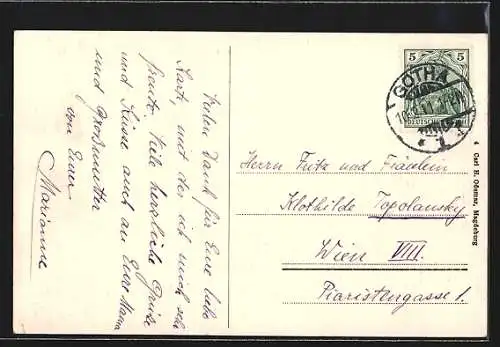 Vielen Dank für Eure liebe
Karte, mit der ich mich sehr
freute. Viele herzliche Grüße
und Küsse auch an Eure Mama
und Großmutter
von Eurer
Marianne
5 5
GOTHA
1
DEUTSCHES
Herrn Fritz und Fräulein
Klothilde Topolansky
Wien VIII.
Piaristengasse 1.
4 Carl H. Odemar, Magdeburg